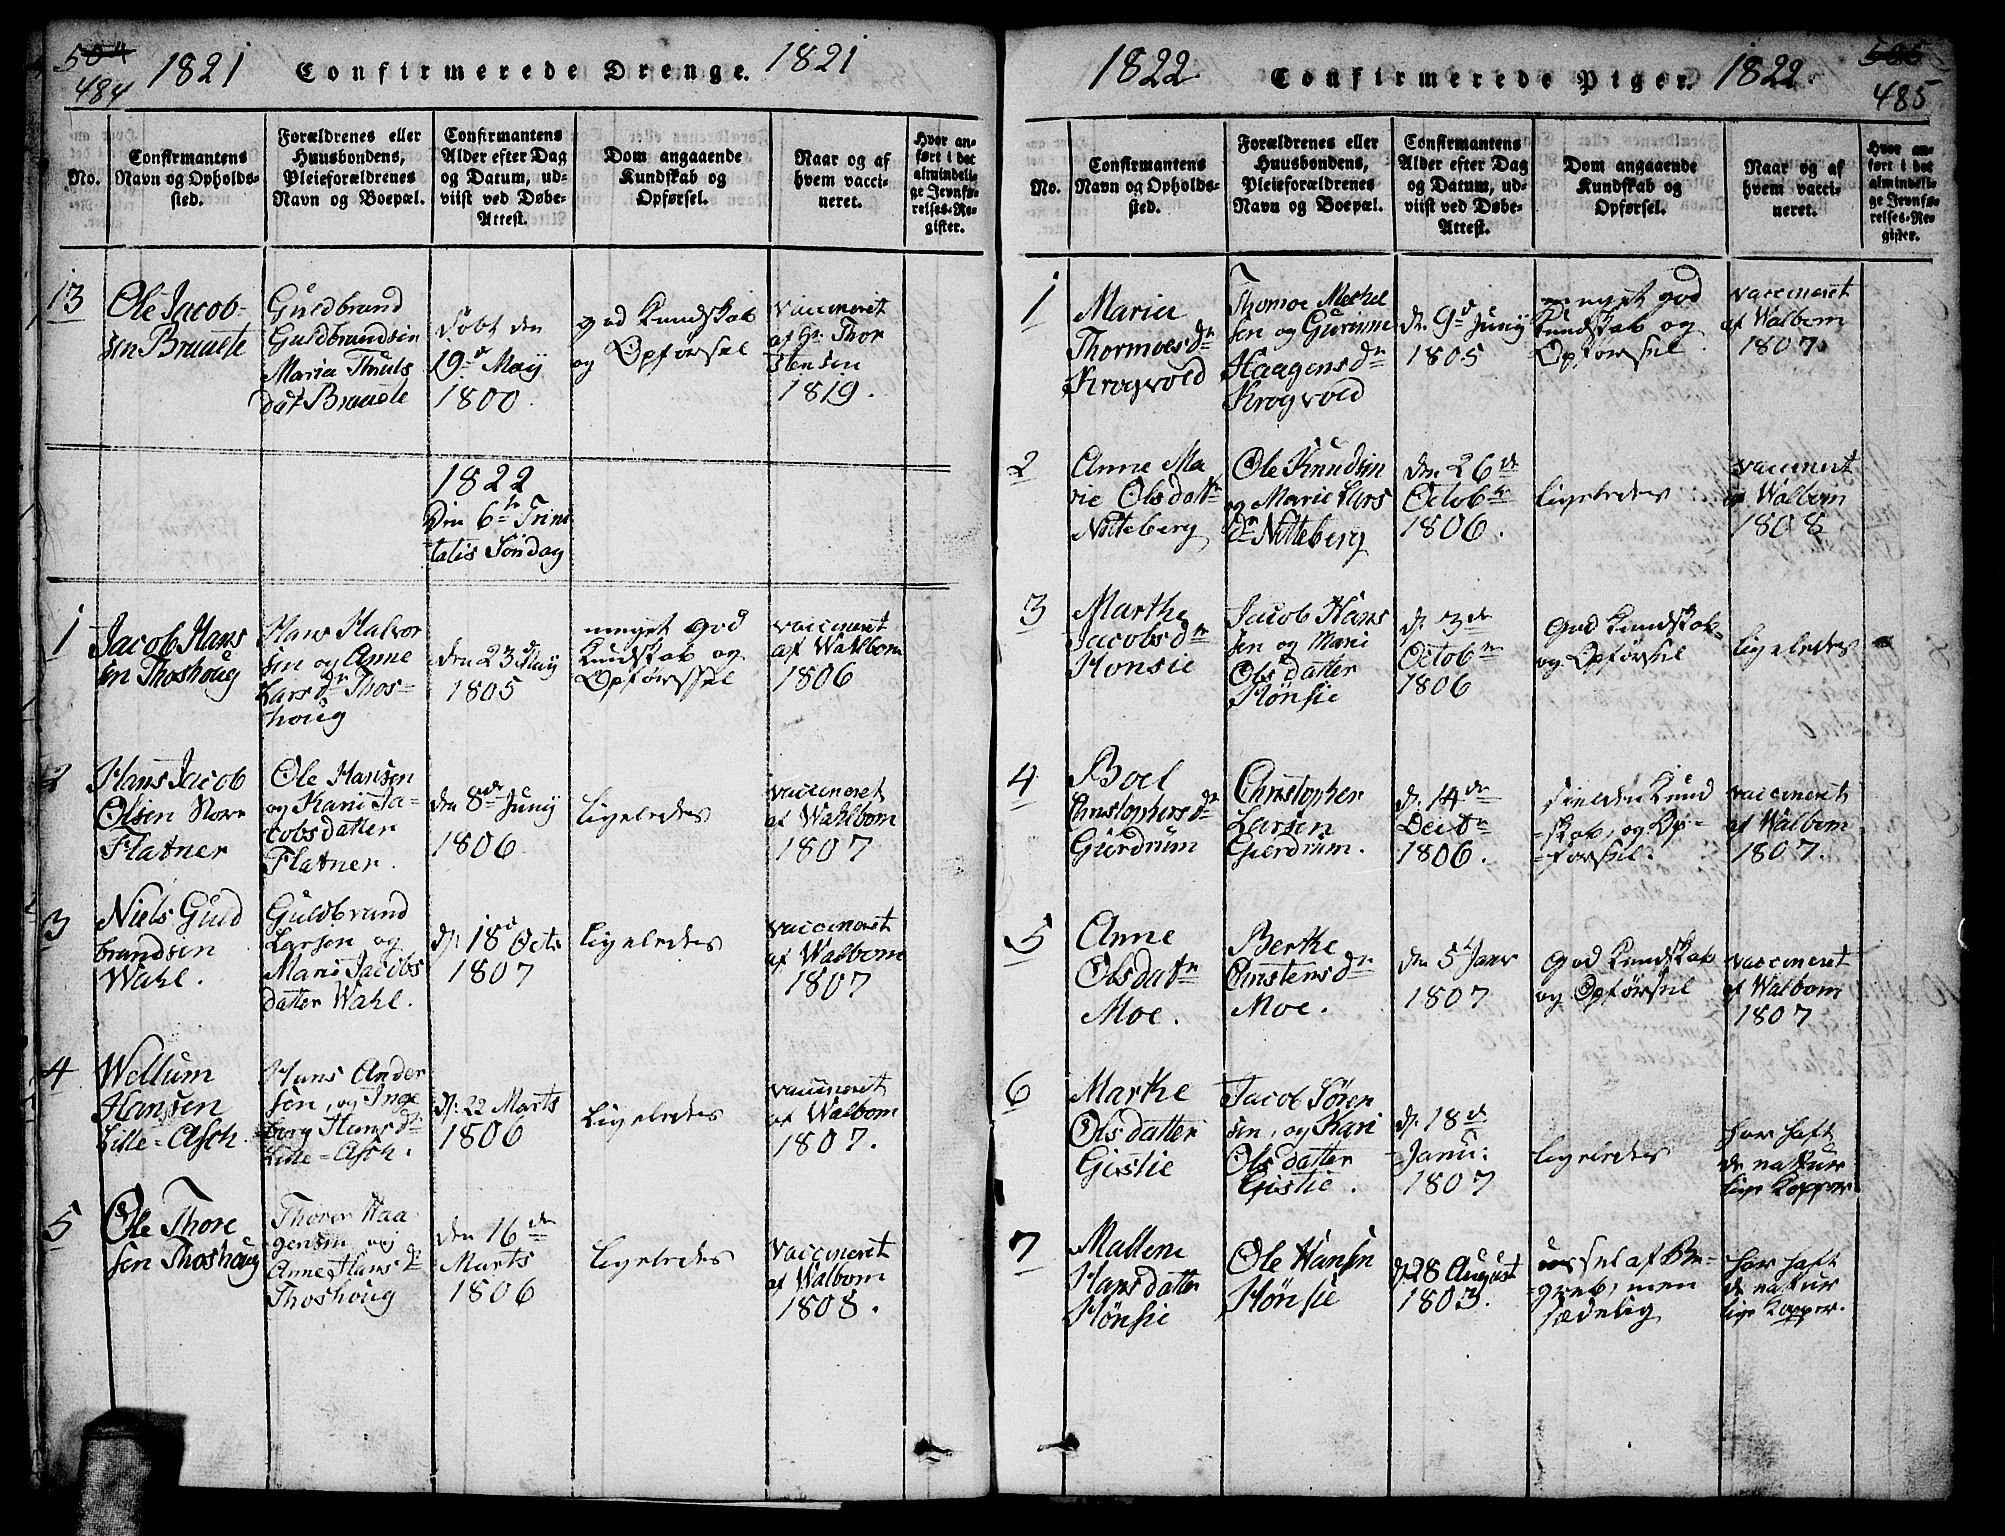 504
484
1821
Confirmerede Drenge.
1821
No.
Confirmantens
Navn og Opholds-
sted.
Forældrenes eller
Huusbondens,
Pleieforældrenes
Navn og Boepæl.
Confirmantens
Alder efter Dag
og Datum, ud-
viist ved Døbe-
Attest.
Dom angaaende
Kundskab og
Opførsel.
Naar og af
hvem vacci-
neret.
Hvor an-
ført i det
almindeli-
ge Jevnfø-
relses-Re-
gister.
13
Ole Jacob-
sen Braaete
Guldbrand
Guldbrandsen
Maria
dat Braaete
Føbt den
19de May
1800
god Kundskab
og Opførsel
vaccineret
af Gr. Thor
stensen
1819.
1822
Den 6te Trini
tatis Søndag
1
Jacob Hans
sen Thoshoug
Hans Halvor
sen og Anne
Larsdr Thos-
houg
den 23d May
1805
meget God
Kundskab og
Opførssel
vaccineret
af Wahlbom
1806
2
Hans Jacob
Olsen Store
Flatner
Ole Hansen
og Kari Ja-
cobsdatter
Flatner.
den 8de Juny
1806
ligeledes
vaccineret
af Wahlbom
1807
3
Niels Guld
brandsen
Wahl.
Guldbrand
Larsen og
Mari Jacobs
datter Wahl.
d. 18d Octb
1807
ligeledes
vaccineret
af Walbom
1807
4
Wellum
Hansen
Lille-Asch.
Hans Ander
sen, og Inge
borg Hansdr
Lille-Asch.
d. 22 Marts
1806
Ligeledes
vaccineret
af Walbom
1807.
5
Ole Thore
sen Thoshoug
Thorer Haa
gensen og
Anne Hansdr
Thoshoug
den 16de
Marts
1806
ligeledes
vaccineret
af Walbom
1808.
1822
Confirmerede Piger.
1822.
505
485
No.
Confirmantens
Navn og Opholds-
sted.
Forældrenes eller
Huusbondens,
Pleieforældrenes
Navn og Boepæl.
Confirmantens
Alder efter Dag
og Datum, ud-
viist ved Døbe-
Attest.
Dom angaaende
Kundskab og
Opførsel.
Naar og af
hvem vacci-
neret.
Hvor an-
ført i det
almindeli-
ge Jevnfø-
relses-Re-
gister.
1
Maria
Thormoesdr
Krogvold
Thomoe Mechel
sen og Gurinne
Haagensdr
Krogvold
dn 9d Juny
1805
meget god
Kundskab og
Opførssel
vaccineret
af Walbom
1807.
2
Anne Ma
rie Olsdatr
Nitteberg
Ole Knudsen
og Marie Lars
dr Nitteberg
den 26de
Octobr
1806.
ligeledes
vaccineret
af Walbom
1808
3
Marthe
Jacobsdr
Honsie
Jacob Hans
sen og Mari
Olsdatter
Hønsie
d. 3de
Octobr
1806
God Kundskab
og Opførsel
ligeledes
4
Boel
Christophersdr
Gierdrum
Christopher
Larsen
Gierdrum.
d. 14de
Decbr
1806.
sielden Kund
skab, og Op-
førsel.
vaccineret
af Walbom
1807.
5
Anne
Olsdatr
Moe.
Berthe
Christensdr
Moe.
den 5t Janr
1807
God Kundskab
og Opførsel
vaccineret
af Walbom
1807
6
Marthe
Olsdatter
Gistie
Jacob Sören
sen, og Kari
Olsdatter
Gistie.
d. 18de
Janu:
1807
ligeledes
har haft
de nattur
lige Kopper
7
Mallene
Hansdatter
Hönsie
Ole Hansen
Hönsie
d. 28 August
1803.
ussel af Be-
greb, men
sædelig
har haft
de nattur
lige Kopper.